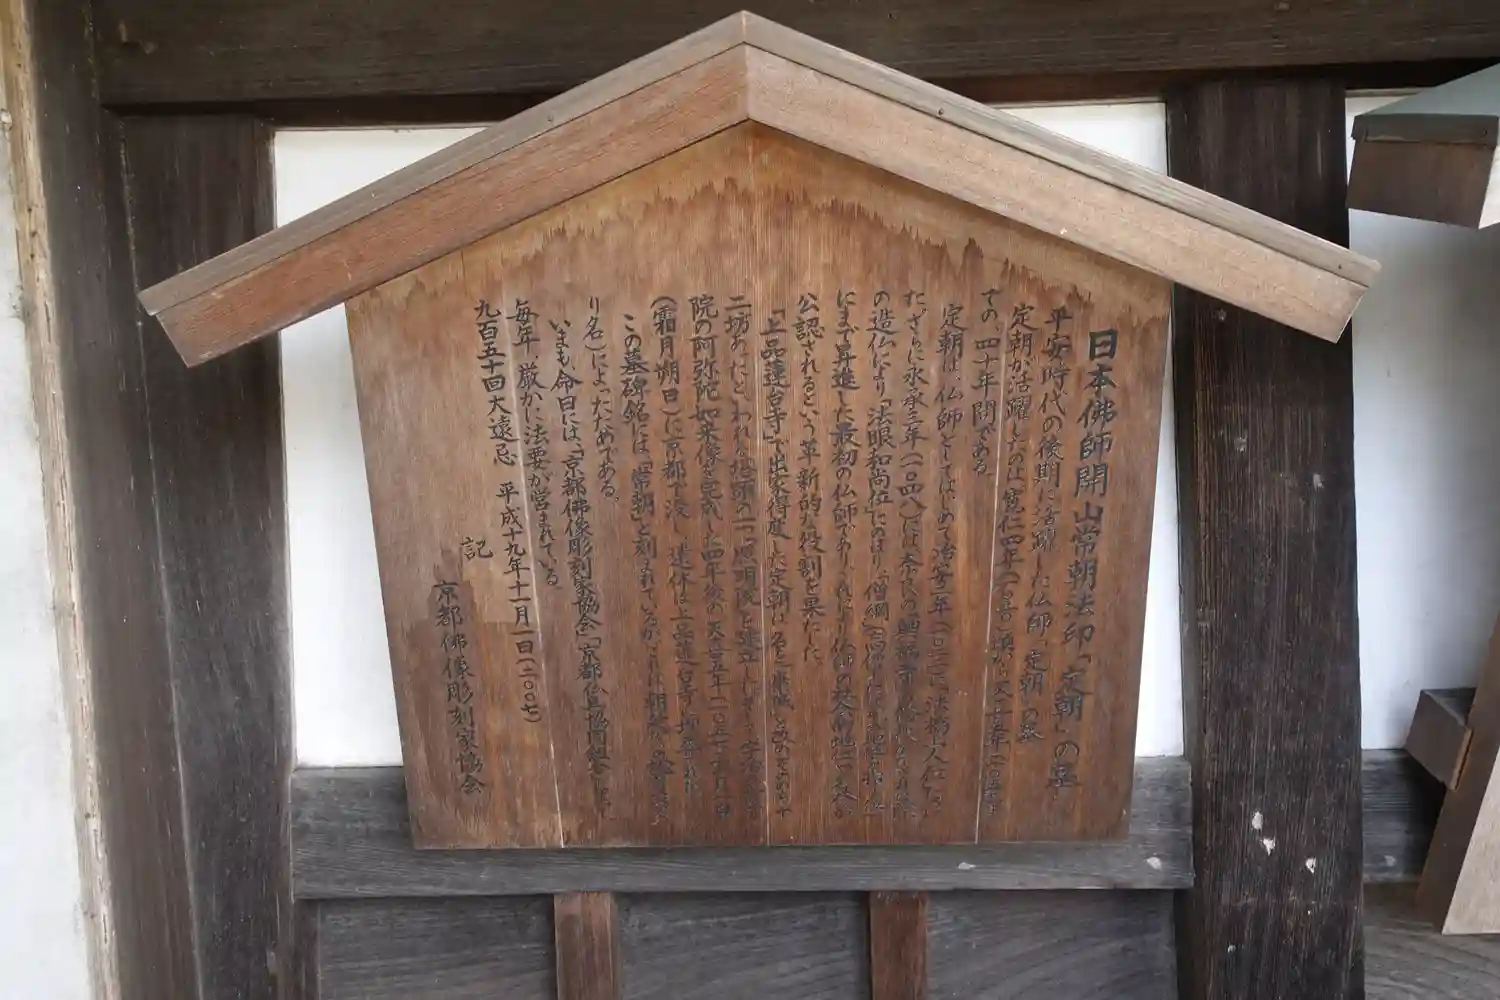 日本佛師開山常朝法印「定朝」の墓
平安時代の後期に活躍した仏師「定朝」の墓
定朝が活躍したのは、寛仁四年(一〇二〇)頃から天喜五年(一〇五七)ま
での、四十年間である。
定朝は、仏師としてはじめて治安二年(一〇二二)、「法橋」に叙任され
た。さらに永承三年(一〇四八)には奈良の「興福寺」
の造仏により「法眼和尚位」にのぼり「僧綱」
にまで昇進した最初の仏師であり、これにより仏師の社会的地位が
公認されるという革新的な役割を果した。
「上品蓮台寺」で出家得度した定朝は、
二坊あったといわれる塔頭の一つ「照明院」を建立し、
院の阿弥陀如来像を完成した四年後の天喜五年(一〇五七)十一月一日
(霜月朔日)に京都で没し、遺体は上品蓮台寺に埋葬された。
この墓碑銘には、「常朝」と刻まれているが、これは
り名)によったためである。
いまも、命日には、「京都佛像彫刻家協会」「京都仏具協同組合」
毎年、厳かに法要が営まれている。
九百五十回大遠忌 平成十九年十一月一日(二〇〇七)
記 京都佛像彫刻家協会